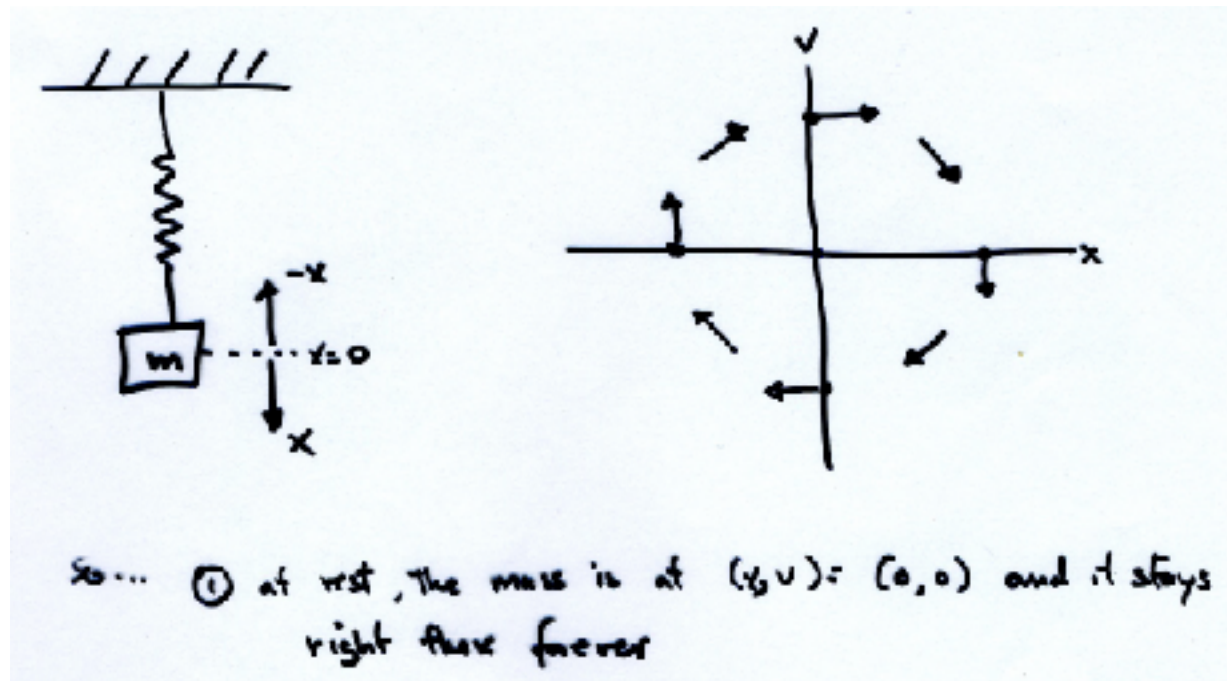 v
-x
x
m
x=0
x
so... ① at rest, the mass is at (x,v)= (0,0) and it stays
right there forever